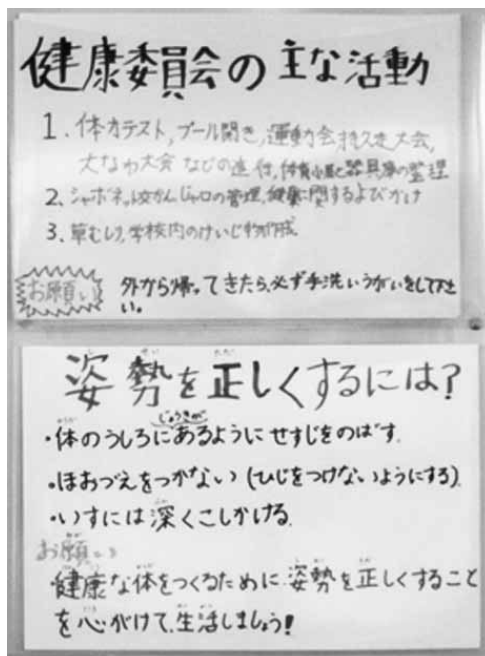 健康委員会の主な活動
1. 体力テスト,プール開き,運動会,持久走大会,
大なわ大会などの進行,体育小屋と器具庫の整理
2. シャボネット交かん,じゃ口の管理,健康に関するよびかけ
3. 草むしり,学校内のけいじ物作成
お願い
外から帰ってきたら、必ず手洗いうがいをして下さ
い。
姿勢を正しくするには?
・体のうしろにじょうぎがあるようにせすじをのばす。
・ほおづえをつかない(ひじをつけないようにする)
・いすには深くこしかける。
お願い
健康な体をつくるために姿勢を正しくすること
を心がけて、生活しましょう!